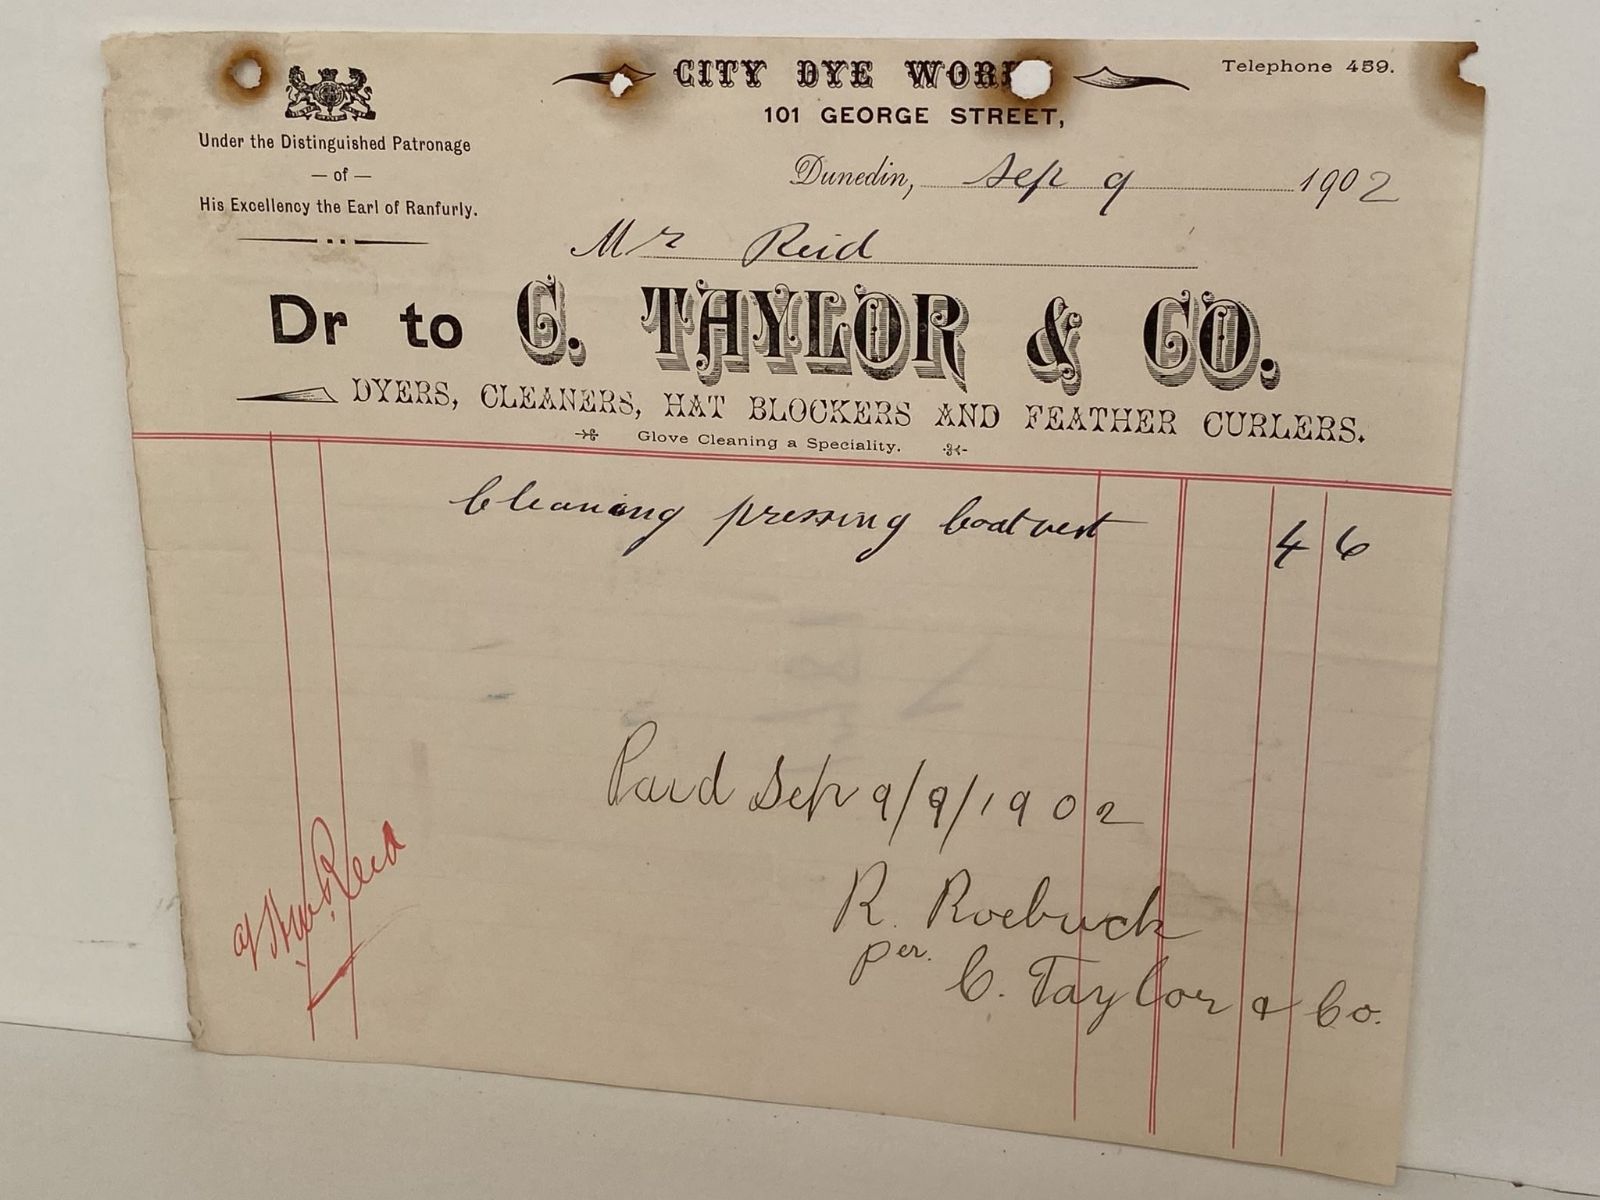 CITY DYE WOR
Telephone 459.
101 GEORGE STREET,
Under the Distinguished Patronage
— of —
His Excellency the Earl of Ranfurly.
Dunedin, Sep 9 1902
Mr Reid
Dr to C. TAYLOR & CO.
DYERS, CLEANERS, HAT BLOCKERS AND FEATHER CURLERS.
Glove Cleaning a Speciality.
Cleaning pressing Coat vest 4 6
Paid Sep 9/9/1902
R. Roebuck
per. C. Taylor & Co.
Reid